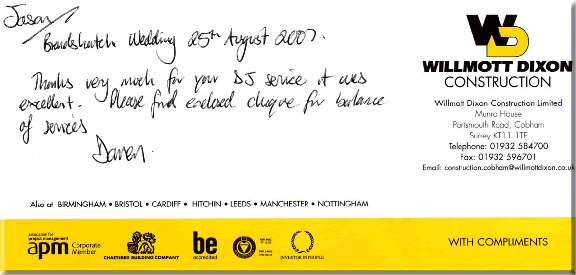 Jason/
Brandshatch Wedding 25th August 2007.
Thanks very much for your DJ service it was
excellent. Please find enclosed cheque for balance
of services
Darren.
WD
WILLMOTT DIXON
CONSTRUCTION
Willmott Dixon Construction Limited
Munro House
Portsmouth Road, Cobham
Surrey KT11 1TF
Telephone: 01932 584700
Fax: 01932 596701
Email: construction.cobham@willmottdixon.co.uk
Also at BIRMINGHAM • BRISTOL • CARDIFF • HITCHIN • LEEDS • MANCHESTER • NOTTINGHAM
association for
project management
apm Corporate
Member
CHARTERED BUILDING COMPANY
be
accredited
INVESTOR IN PEOPLE
WITH COMPLIMENTS